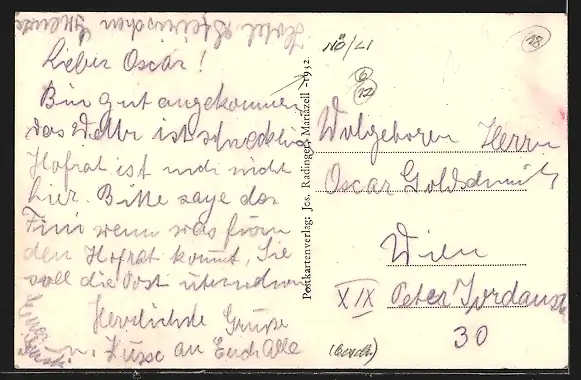 Hotel Steirischen Grenze
Lieber Oscar!
Bin gut angekommen
das Wetter ist schrecklich
Hofrat ist noch nicht
hier. Bitte sage der
Fini wenn was von
den Hofrat kommt, Sie
soll die Post übersenden
Herzlichste Grüsse
u. Küsse an Euch Alle
Postkartenverlag: Jos. Radinger, Mariazell - 1932
NÖ/LI
6
12
18
Wolgeboren Herrn
Oscar Goldschmidt
Wien
XIX Peter Jordanstr
30